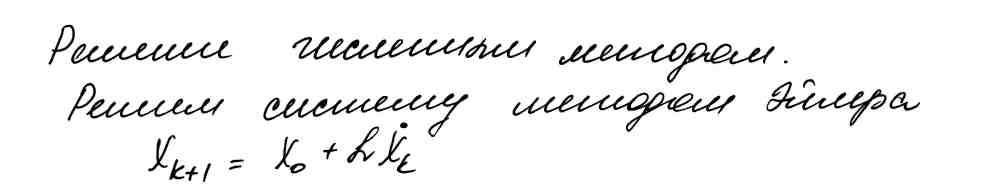 Решим численным методом.
Решим систему методом Эйлера
X_{k+1} = X_0 + h Ẋ_k